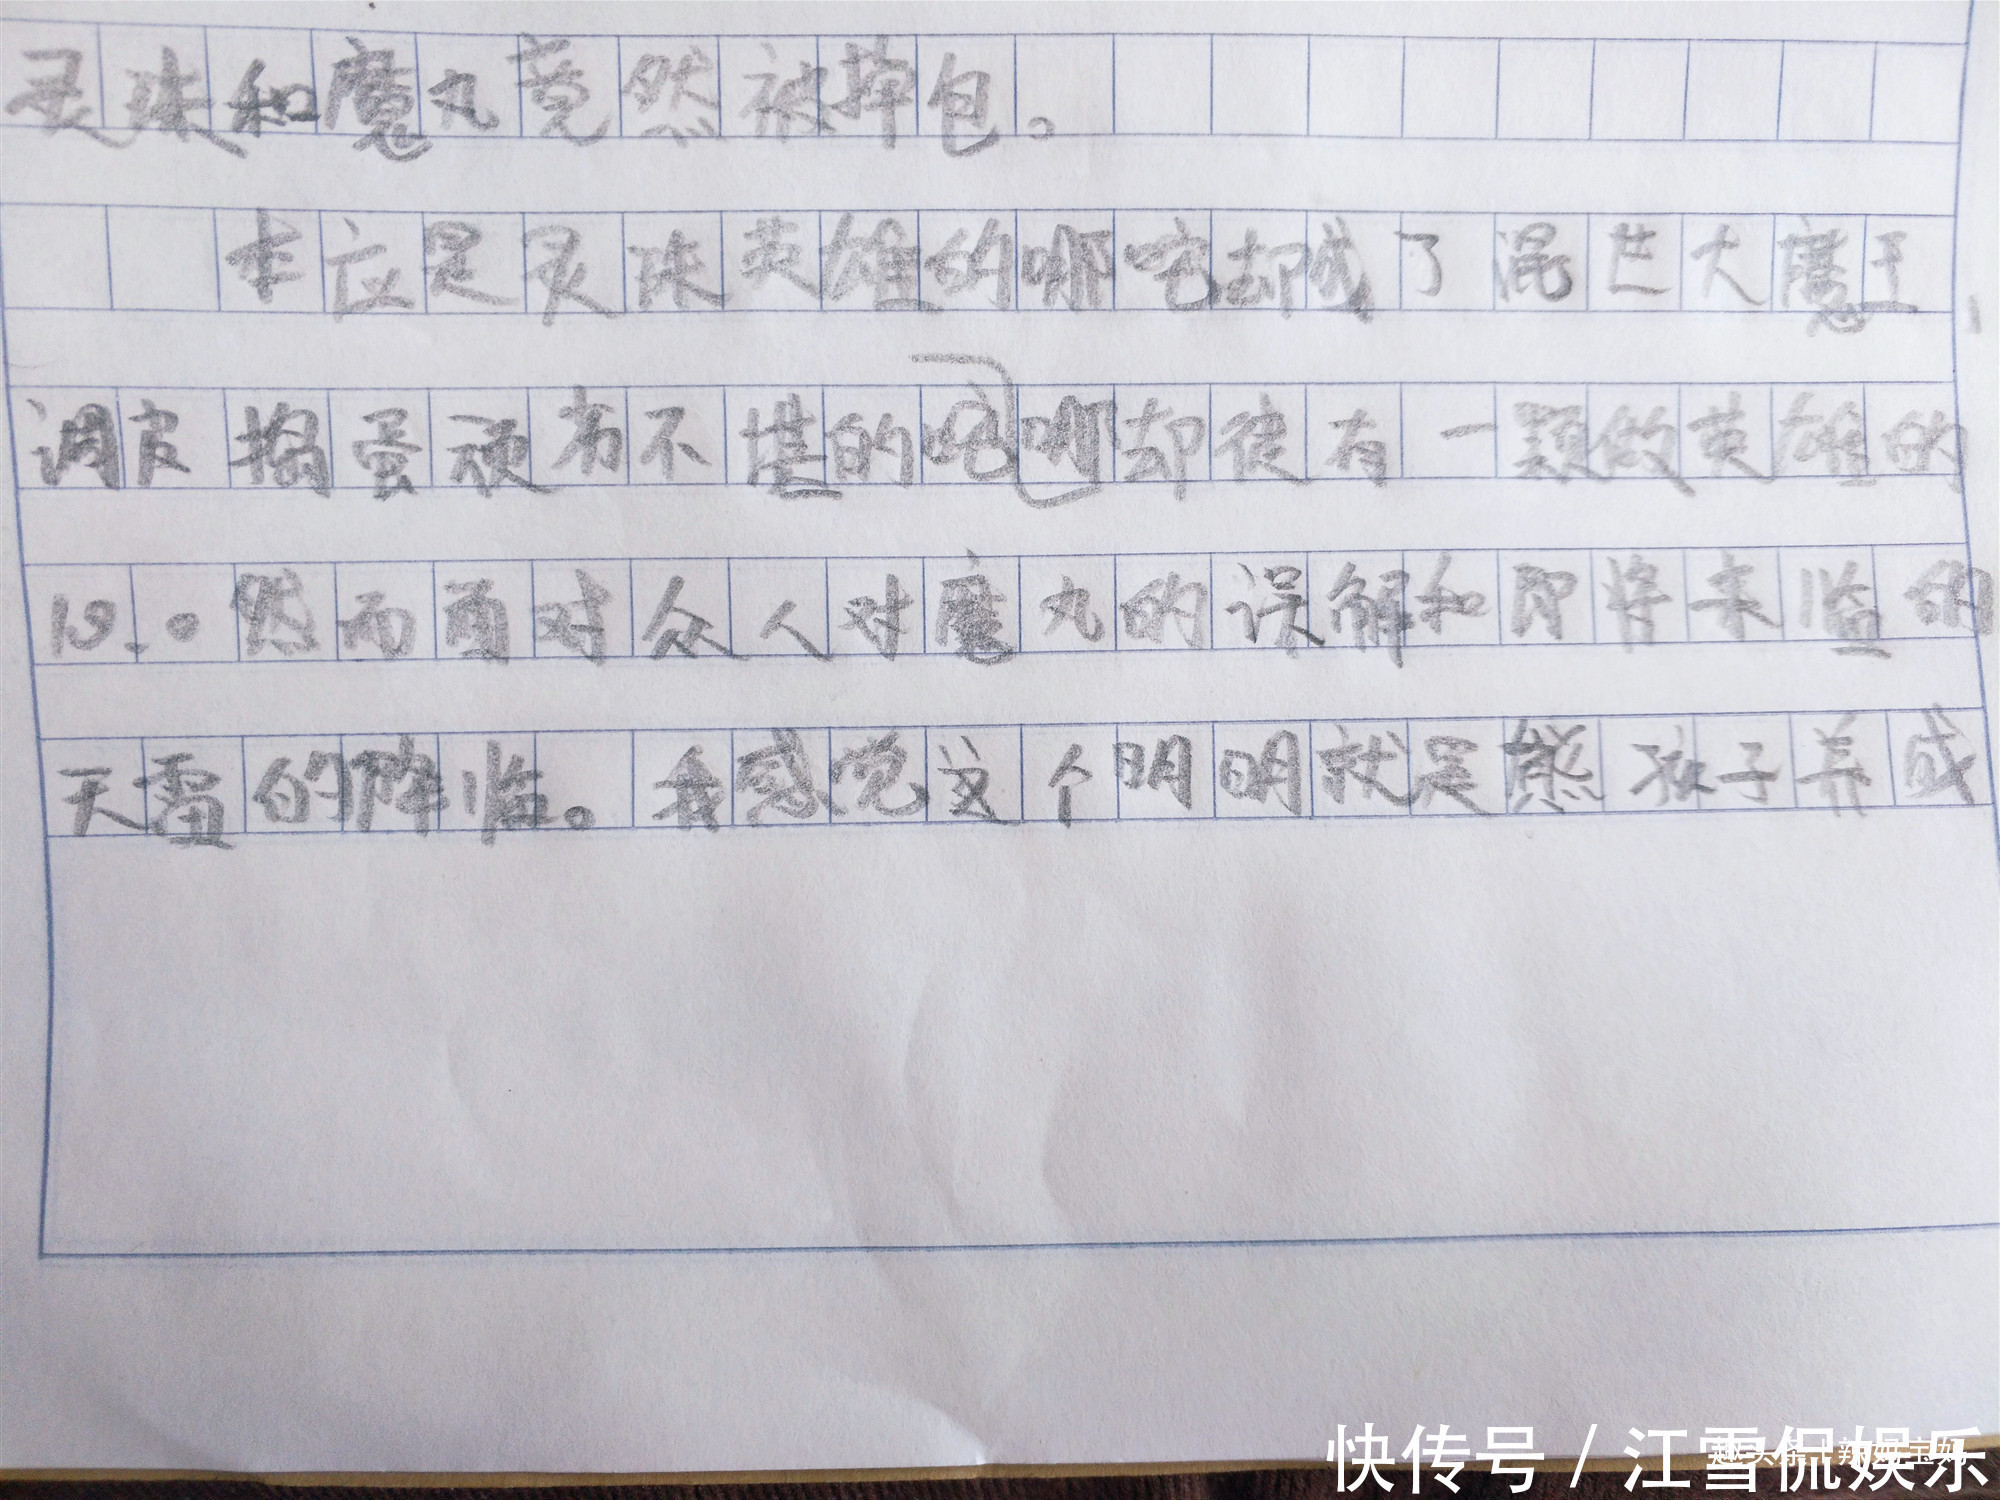 灵珠和魔丸竟然被掉包。
本应是灵珠英雄的哪咤却成了混世大魔王，
调皮捣蛋顽劣不堪的咤哪却徒有一颗做英雄的
心。然而面对众人对魔丸的误解和即将来临的
天雷的降临。我感觉这个明明就是熊孩子养成
快传号 / 江雪侃娱乐